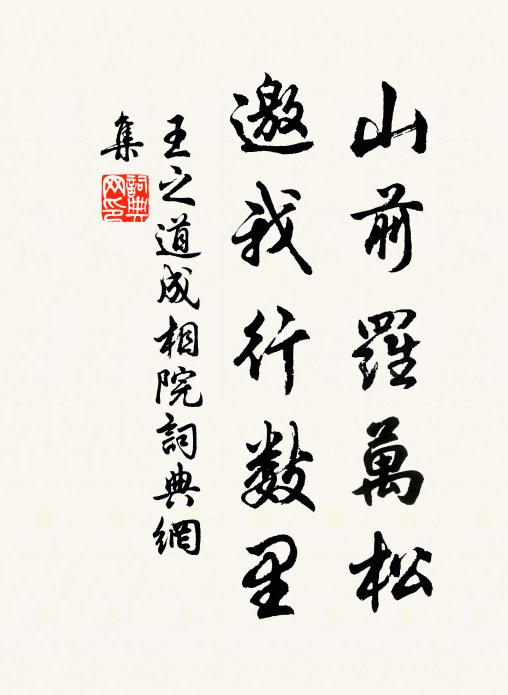 山前羅萬松
邀我行數里
王之道成相院詞典網
集
詞典
网印